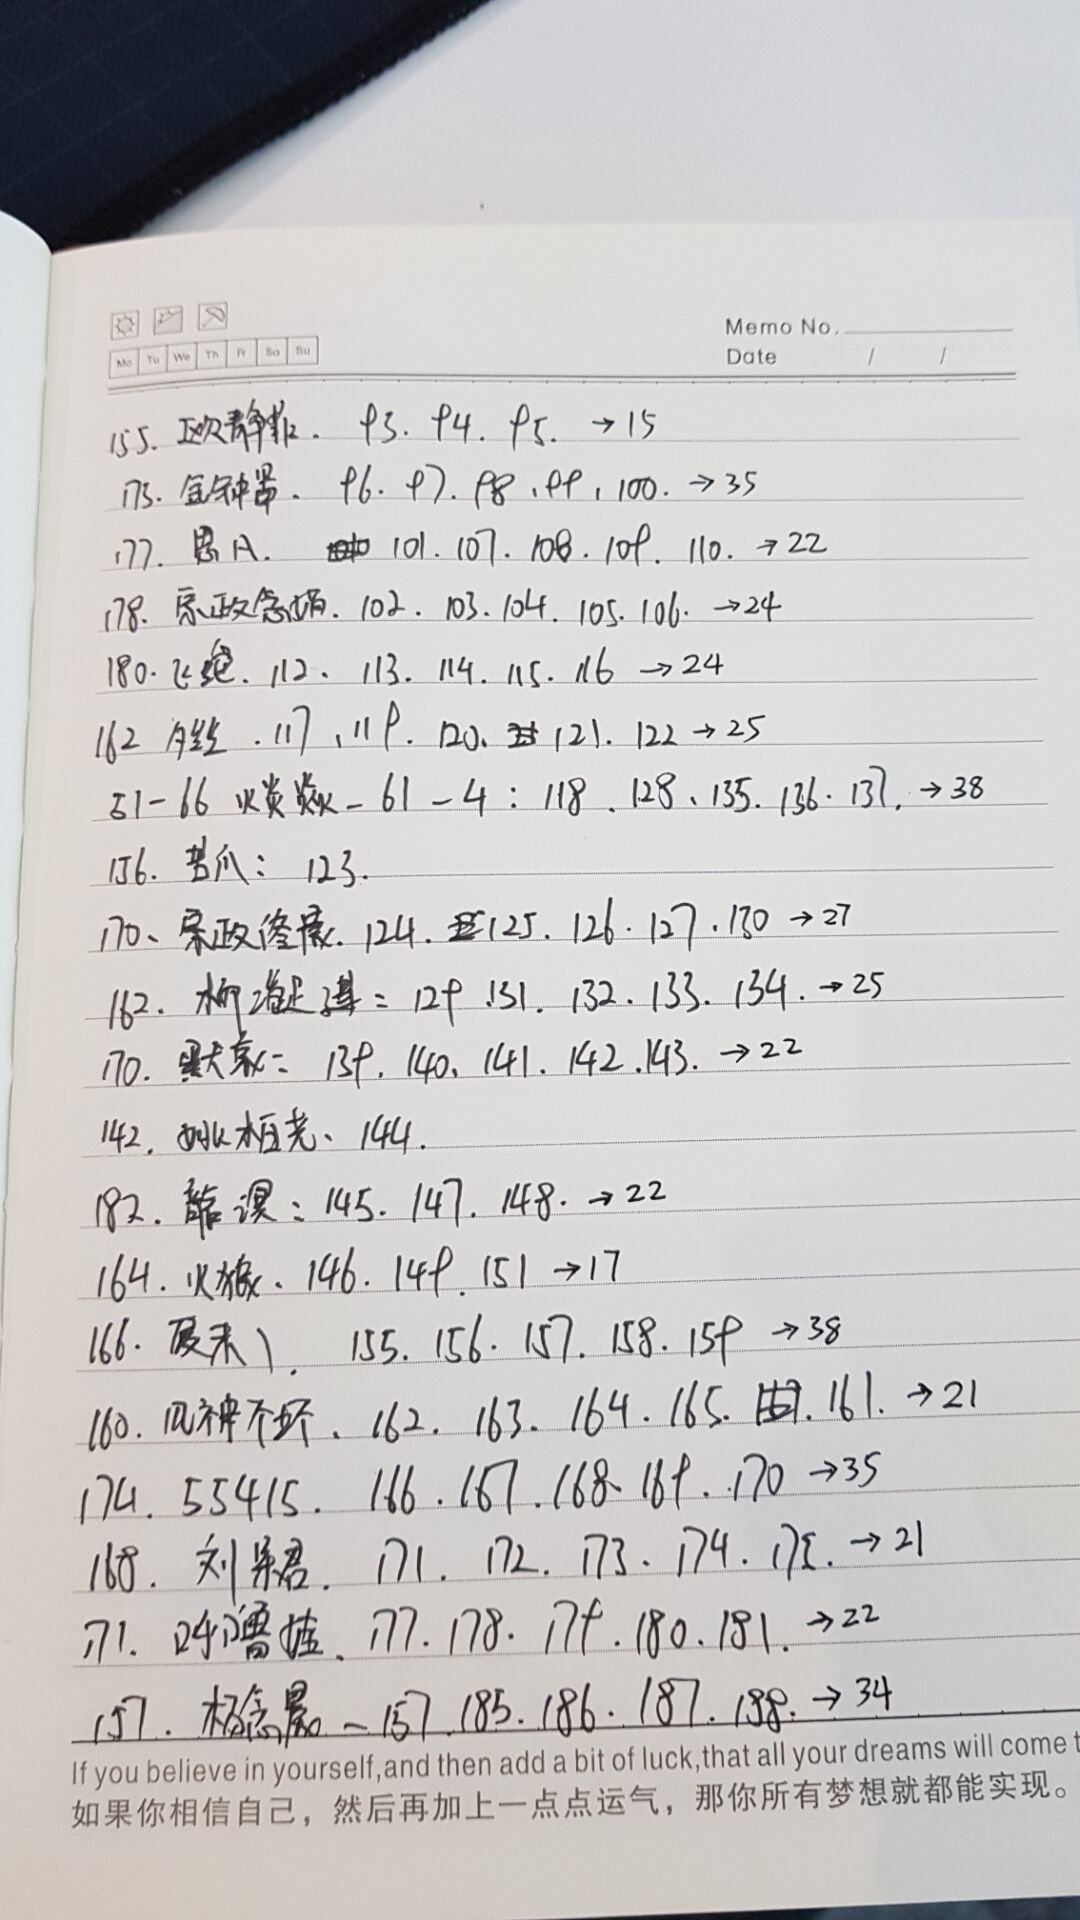 Memo No.
Mo Tu We Th Fr Sa Su
Date / /
155. 欧静 . 93. 94. 95. →15
175. 金钟 . 96. 97. 98. 99. 100. →35
177. 思凡. 101. 107. 108. 109. 110. →22
178. 宗政念 . 102. 103. 104. 105. 106. →24
180. 飞 . 112. 113. 114. 115. 116 →24
162 月丝 . 117. 119. 120. 121. 122 →25
51-66 火炎焱 - 61 - 4: 118. 128. 135. 136. 137. →38
156. 苦瓜: 123.
170. 宗政修豪. 124. 125. 126. 127. 130 →27
162. 柳 : 129 131. 132. 133. 134. →25
170. : 139. 140. 141. 142. 143. →22
142. 姚相尧、 144.
182. : 145. 147. 148. →22
164. 火狼、 146. 149. 151 →17
166. 夏末 155. 156. 157. 158. 159 →38
160. 风神不坏、 162. 163. 164. 165. 161. →21
174. 55415. 166. 167. 168. 169. 170 →35
168. 刘 君. 171. 172. 173. 174. 175. →21
171. 噜 . 177. 178. 179. 180. 181. →22
157. 杨念晨 - 157 185. 186. 187. 188. →34
If you believe in yourself,and then add a bit of luck,that all your dreams will come t
如果你相信自己，然后再加上一点点运气，那你所有梦想就都能实现。